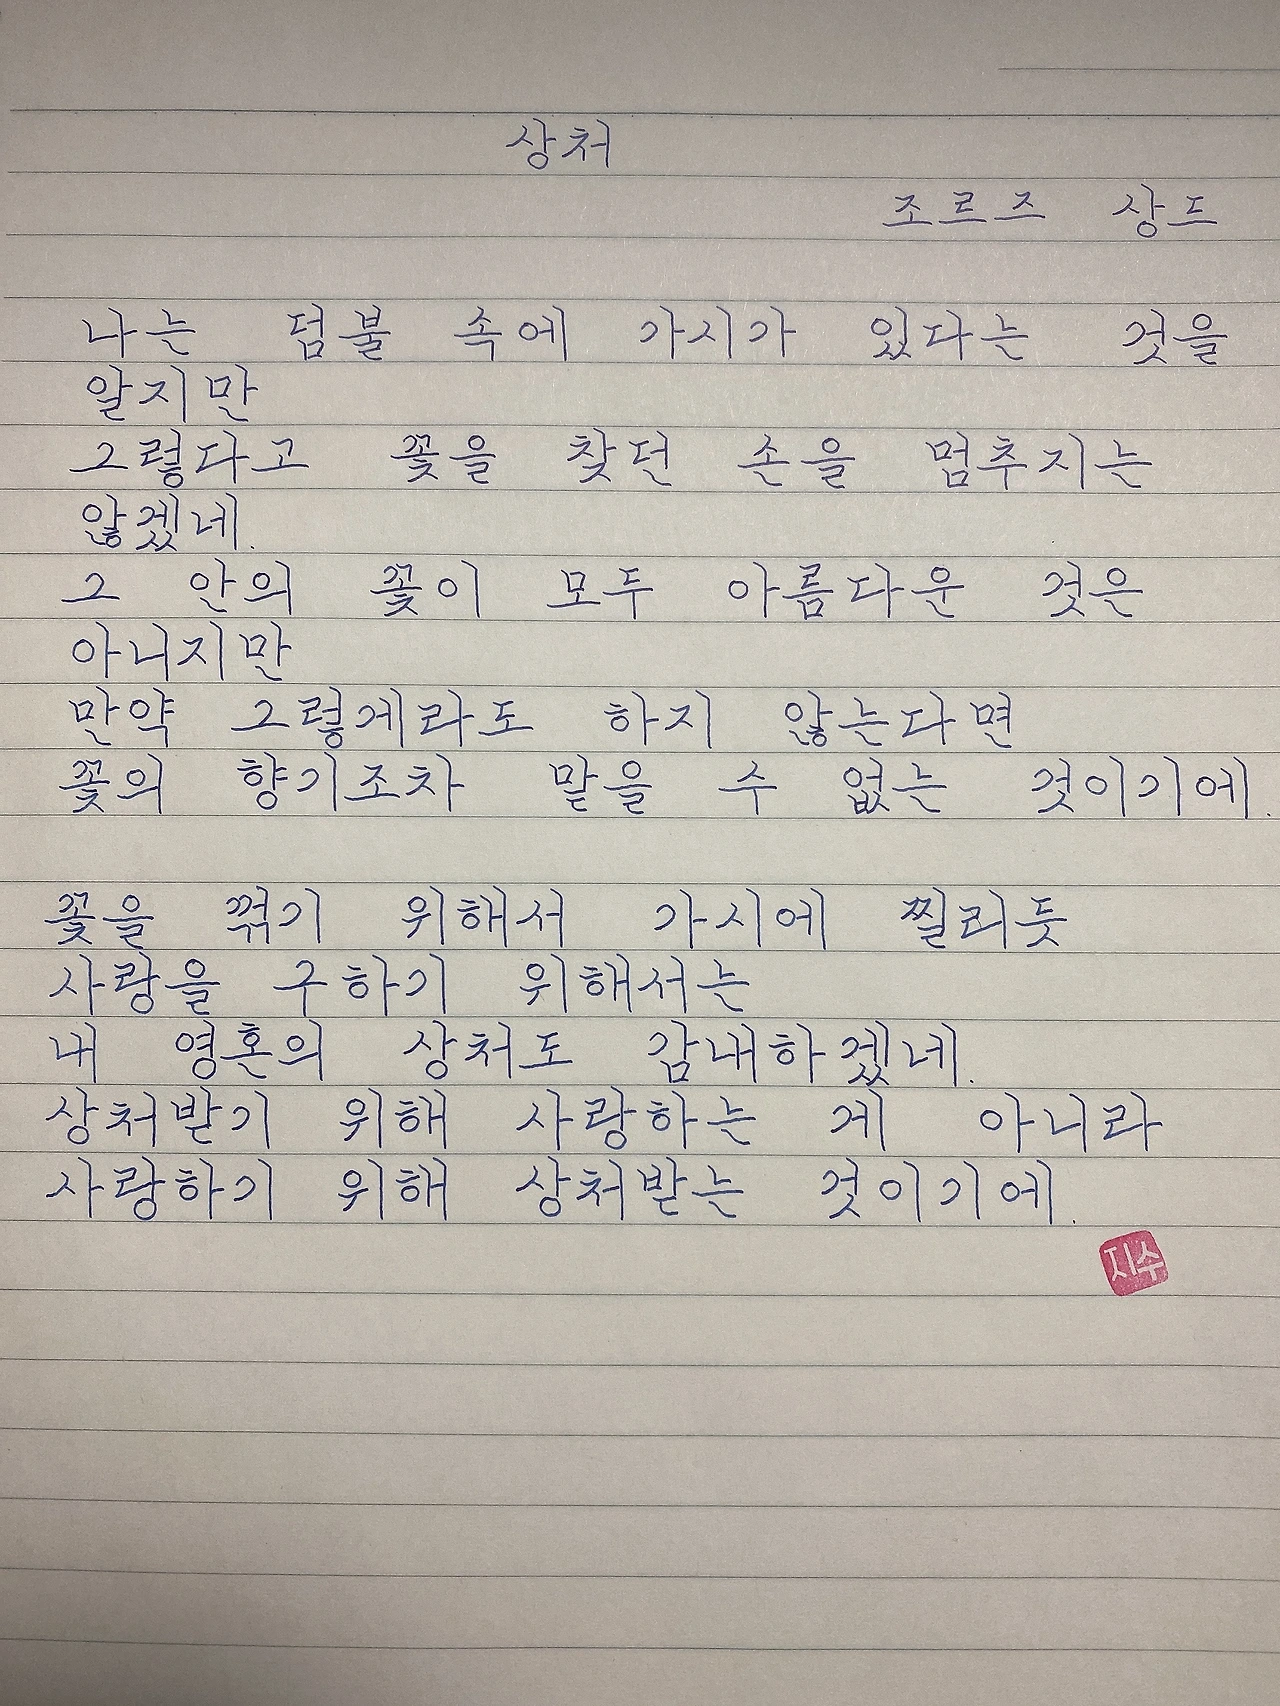 상처
조르즈 상드
나는 덤불 속에 가시가 있다는 것을
알지만
그렇다고 꽃을 찾던 손을 멈추지는
않겠네.
그 안의 꽃이 모두 아름다운 것은
아니지만
만약 그렇게라도 하지 않는다면
꽃의 향기조차 맡을 수 없는 것이기에.
꽃을 꺾기 위해서 가시에 찔리듯
사랑을 구하기 위해서는
내 영혼의 상처도 감내하겠네.
상처받기 위해 사랑하는 게 아니라
사랑하기 위해 상처받는 것이기에.
지수